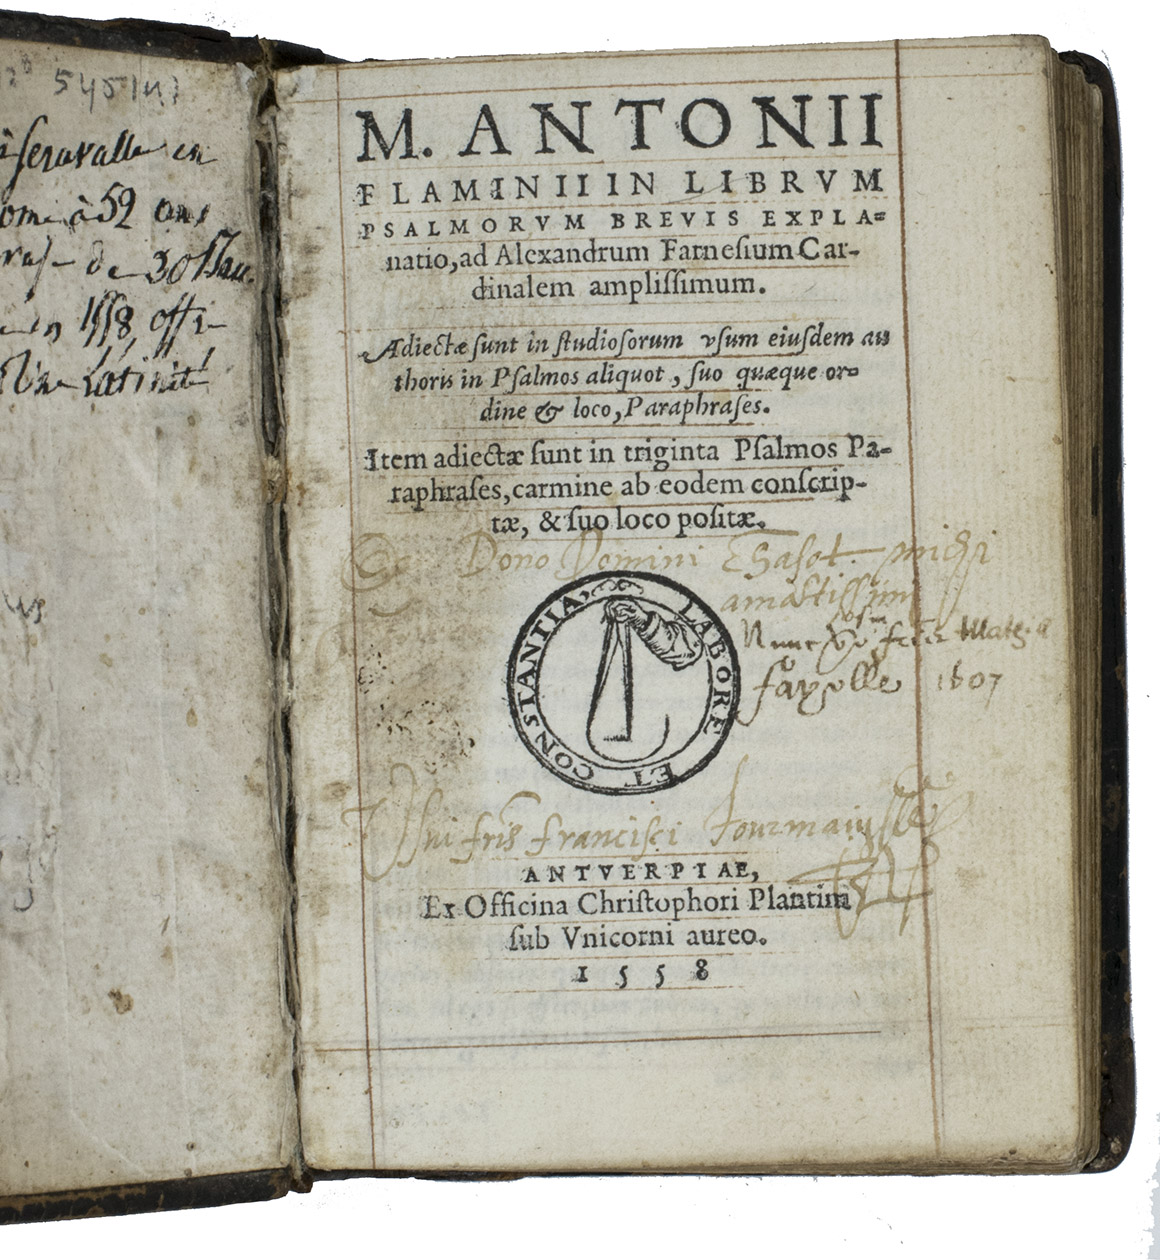 545
en
à 52 ans
de 30
1558
Latinité
M. ANTONII
FLAMINII IN LIBRVM
PSALMORVM BREVIS EXPLA-
natio, ad Alexandrum Farnesium Car-
dinalem amplissimum.
Adiectæ sunt in studiosorum vsum eiusdem au
thoris in Psalmos aliquot, suo quæque or-
dine & loco, Paraphrases.
Item adiectæ sunt in triginta Psalmos Pa-
raphrases, carmine ab eodem conscrip-
tæ, & suo loco positæ.
Dono Domini michi
amantissimi
Nunc
1607
LABORE ET CONSTANTIA
Vsui fris francisci
ANTVERPIAE,
Ex Officina Christophori Plantini
sub Vnicorni aureo.
1558